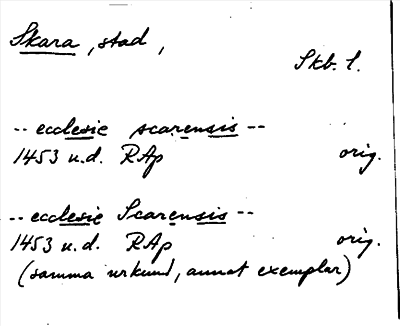 Skara, stad,
Skb. l.
-- ecclesie scarensis --
1453 u.d. RAp orig.
-- ecclesie Scarensis --
1453 u.d. RAp orig.
(samma urkund, annat exemplar)